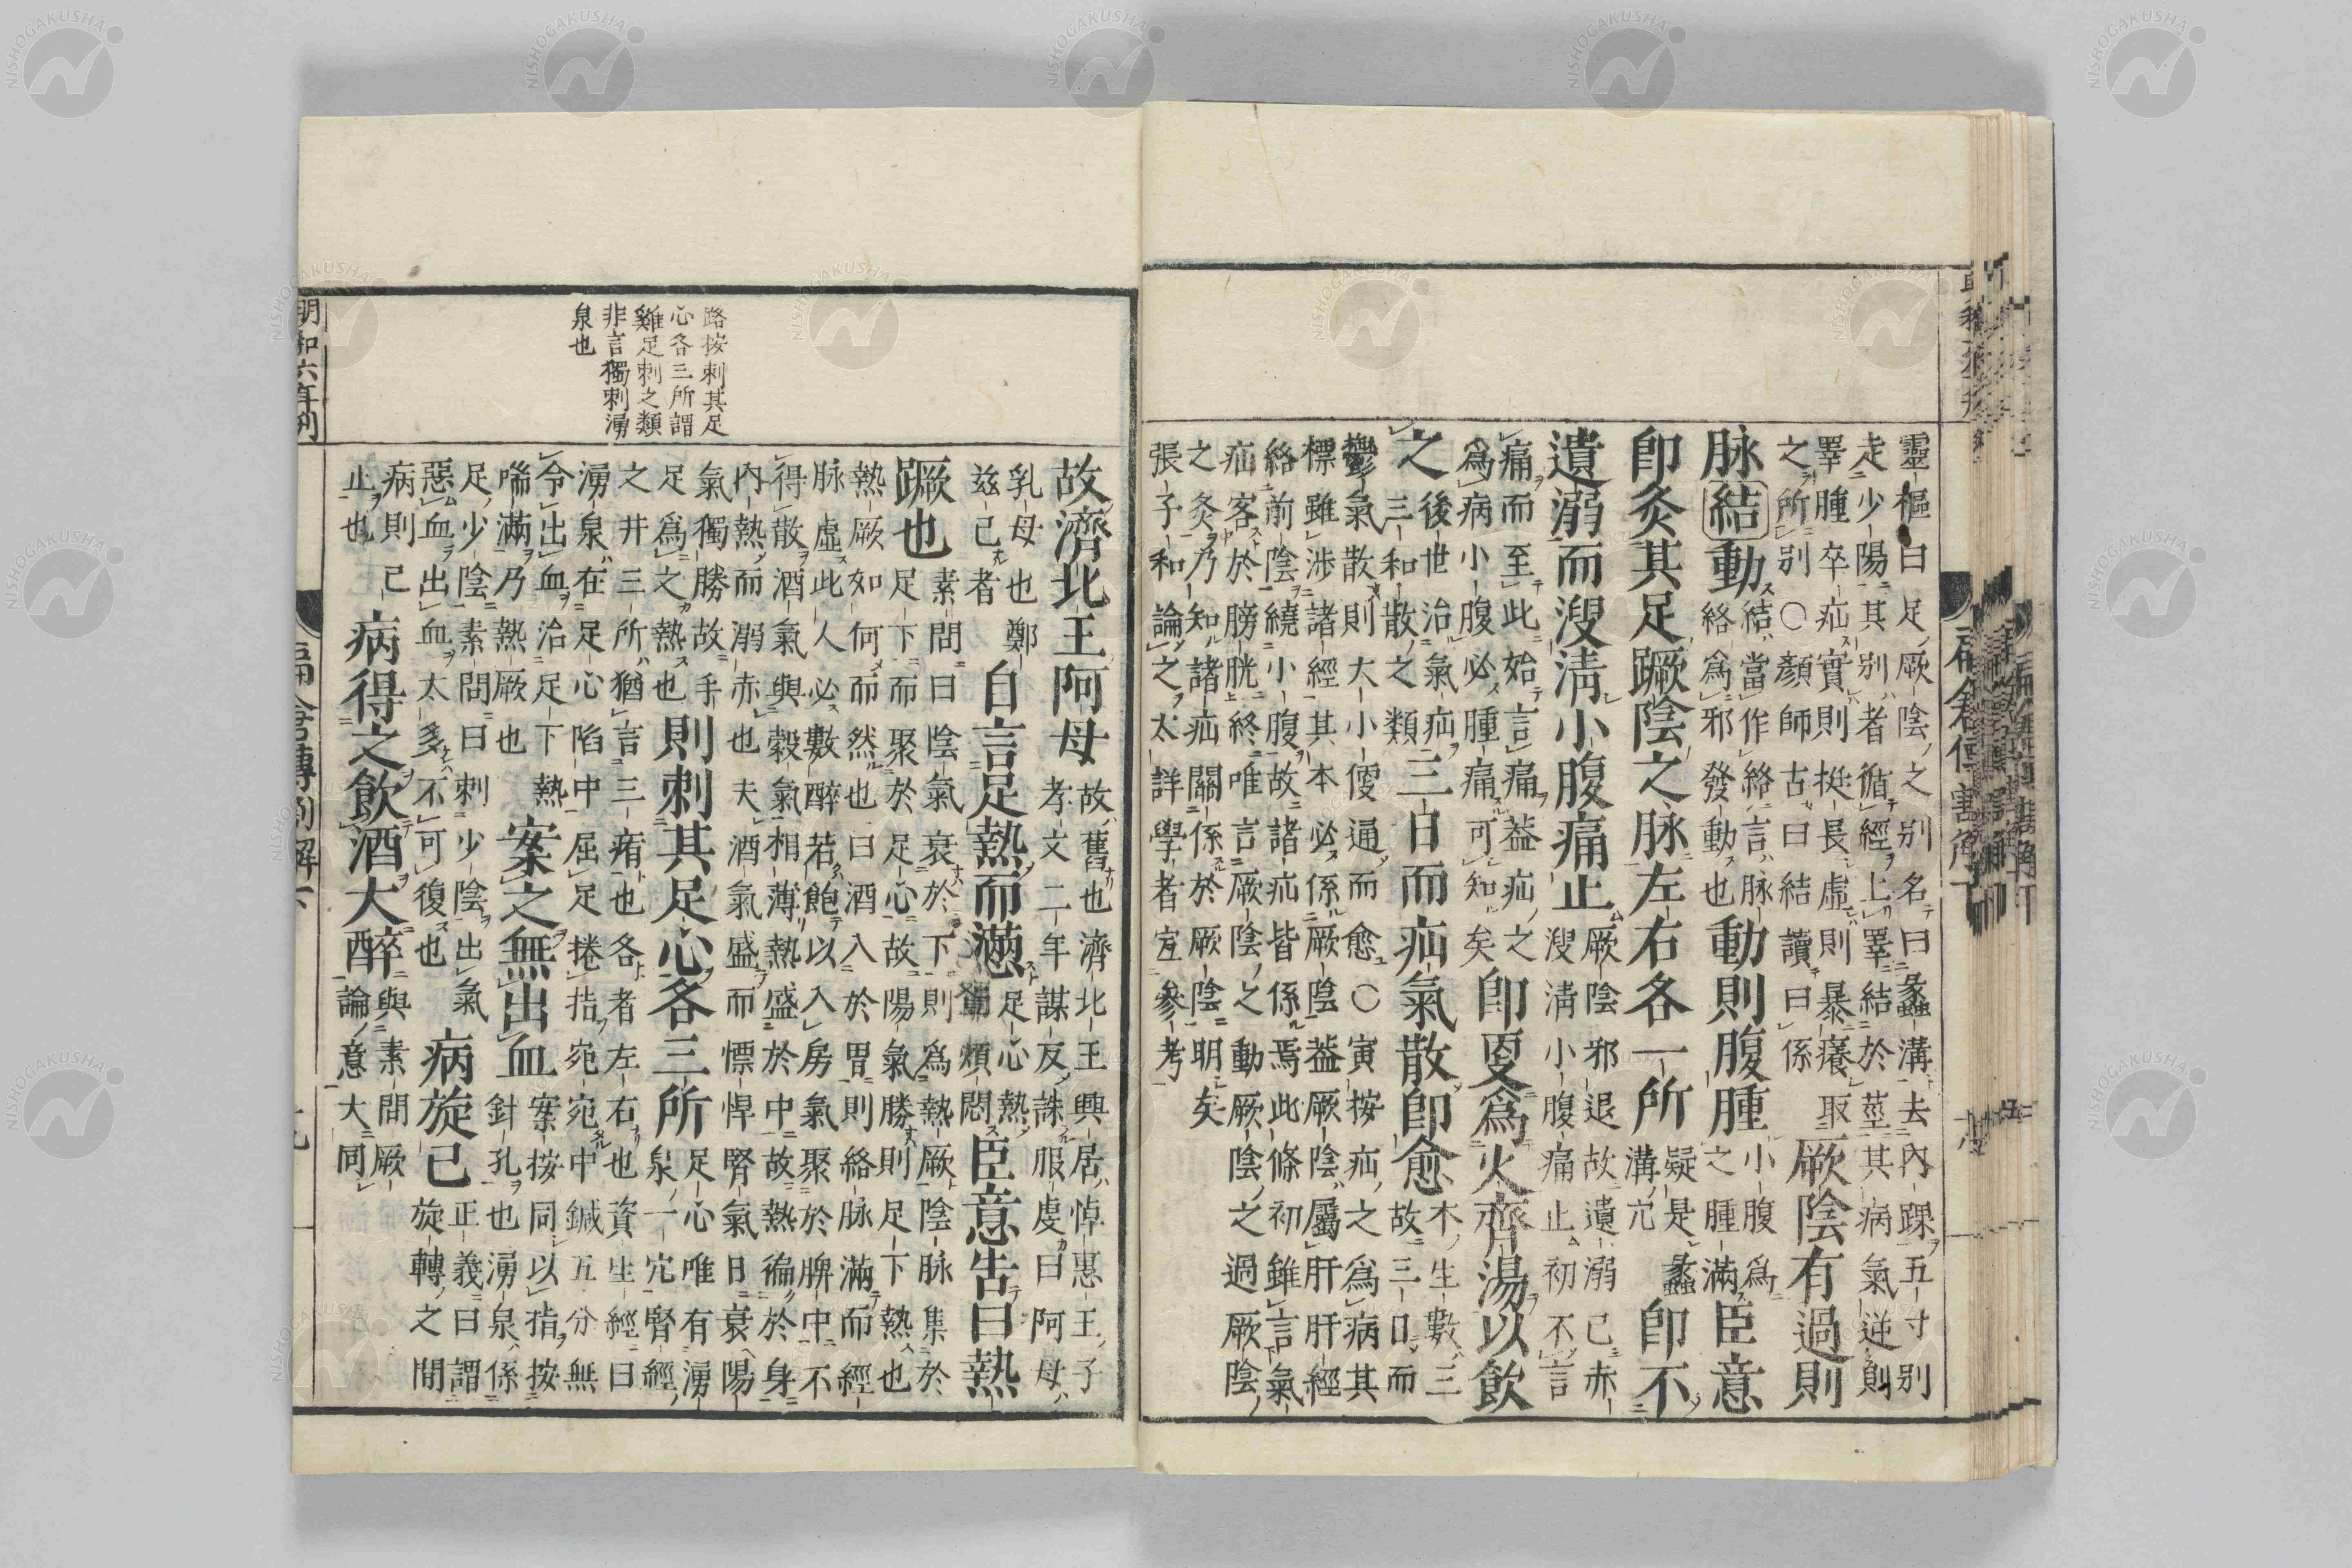 靈樞曰足厥陰之別名曰蠡溝去內踝五寸別
走少陽其別者循經上睪結於莖其病氣逆則
睪腫卒疝實則挺長虛則暴癢取
之所別〇顏師古曰結讀曰係
厥陰有過則
脉結動
結當作絡言脉
絡爲邪發動也
動則腹腫
小腹爲
之腫滿
臣意
即灸其足蹶陰之脉左右各一所
疑是蠡
溝穴
即不
遺溺而溲清小腹痛止
厥陰邪退故遺溺已赤
溲清小腹痛止初不言
痛而至此始言痛蓋疝之
爲病小腹必腫痛可知矣
即更爲火齊湯以飲
之
後世治氣疝
三和散之類
三日而疝氣散即愈
木生數三
故三日而
鬱氣散則大小便通而愈〇寅按疝之爲病其
標雖涉諸經其本必係厥陰蓋厥陰屬肝肝經
絡前陰繞小腹故諸疝皆係焉此條初雖言氣
疝客於膀胱終唯言厥陰之動厥陰之過厥陰
之灸乃知諸疝關係於厥陰明矣
張子和論之太詳學者宜參考
路按刺其足
心各三所謂
雞足刺之類
非言獨刺湧
泉也
故濟北王阿母
故舊也濟北王興居悼惠王子
孝文二年謀反誅服虔曰阿母
乳母也鄭
玆己者
自言足熱而懣
足心熱
而煩悶
臣意告曰熱
蹶也
素問曰陰氣衰於下則爲熱厥陰脉集於
足下而聚於足心故陽氣勝則足下熱也
熱厥如何而然也曰酒入於胃則絡脉滿而經
脉虛此人必數醉若飽以入房氣聚於脾中不
得散酒氣與穀氣相薄熱盛於中故熱徧於身
內熱而溺赤也夫酒氣盛而慓悍腎氣日衰陽
氣獨勝故手
足爲之熱也
則刺其足心各三所
足心唯有湧
泉一穴腎經
之井三所猶言三痏也各者左右也資生經曰
湧泉在足心陷中屈足捲指宛宛中鍼五分無
令出血治足下熱
喘滿乃熱厥也
案之無出血
案按同以指按
針孔也湧泉係
足少陰素問曰刺少陰出氣
惡血出血太多不可復也
病旋已
正義曰謂
旋轉之間
病則已
止也
病得之飲酒大醉
與素問厥
論意大同
明和六年刻
扁倉傳割解下